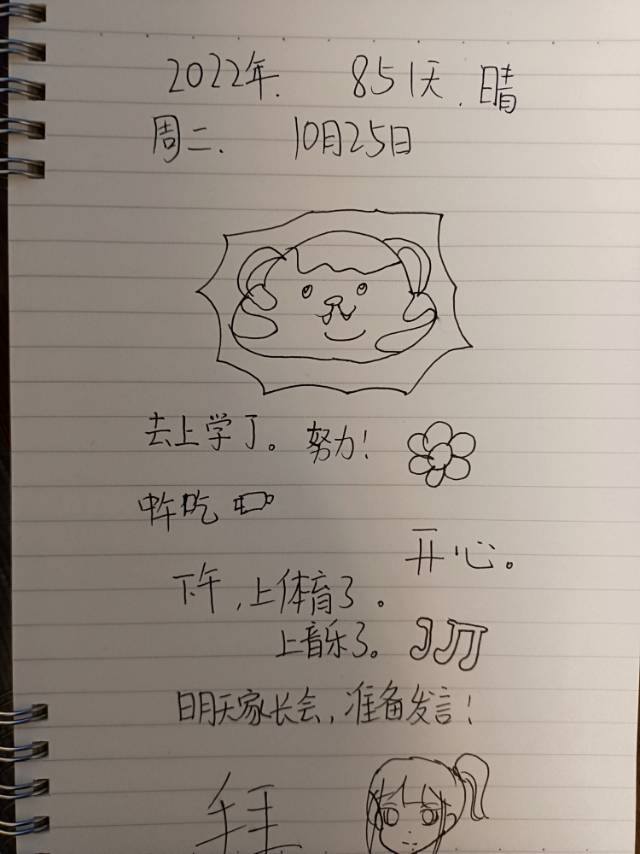 2022年. 851天. 晴
周二. 10月25日
去上学了。努力!
中午吃
开心。
下午,上体育了。
上音乐了。
明天家长会,准备发言!